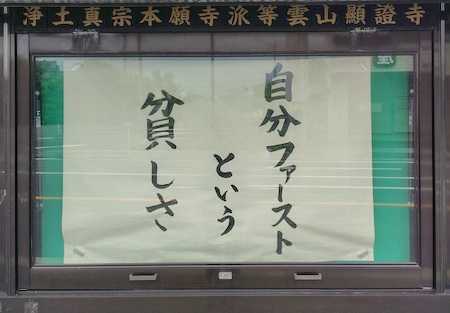 浄土真宗本願寺派等雲山顯證寺
自分ファースト
という
貧しさ